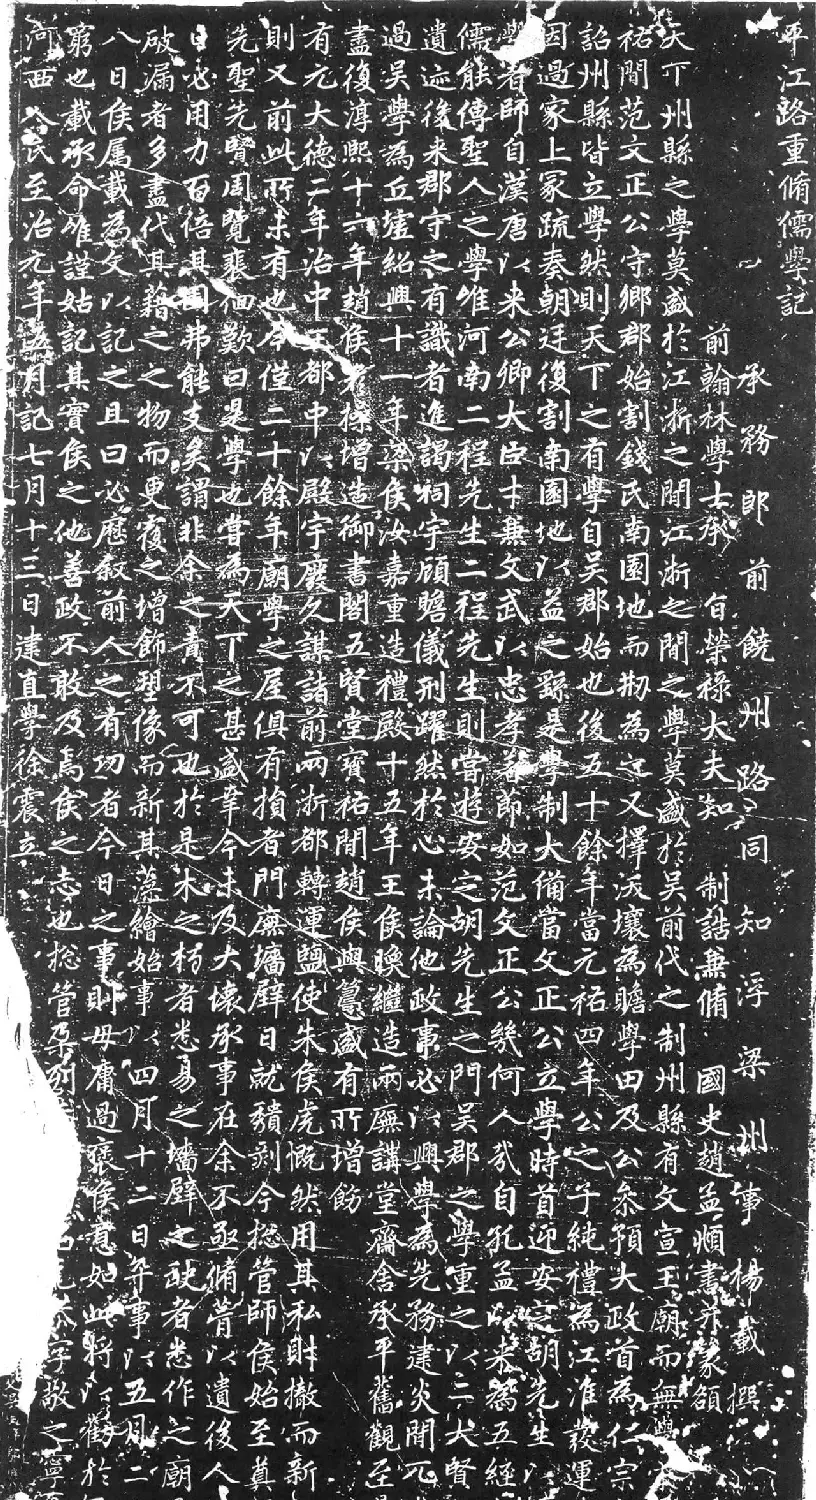 平江路重脩儒學記
承務郎前饒州路同知浮梁州事楊載撰
前翰林學士承旨榮祿大夫知制誥兼脩國史趙孟頫書并篆額
天下州縣之學莫盛於江浙之間江浙之間之學莫盛於吳前代之制州縣有文宣王廟而無學
祐間范文正公守鄉郡始割錢氏南園地而刱為之又擇沃壤為贍學田及公叅預大政首為仁宗
詔州縣皆立學然則天下之有學自吳郡始也後五十餘年當元祐四年公之子純禮為江淮發運
因過家上冢疏奏朝廷復割南園地以益之繇是學制大備當文正公立學時首迎安定胡先生以
學者師自漢唐以來公卿大臣才兼文武以忠孝著節如范文正公幾何人哉自孔孟以來為五經
儒能傳聖人之學惟河南二程先生二程先生則嘗遊安定胡先生之門吳郡之學重之以二大賢
遺迹後来郡守之有識者進謁祠宇顧瞻儀刑躍然於心未論他政事必以興學為先務建炎間兀
過吳學為丘墟紹興十一年梁侯汝嘉重造禮殿十五年王侯㬇繼造兩廡講堂齋舍承平舊觀至
盡復淳熙十六年趙侯彥操增造御書閣五賢堂寶祐間趙侯與𥲅盛有所增飭
有元大德二年治中王都中以殿宇廢久謀諸前兩浙都轉運鹽使朱侯虎慨然用其私財撤而新
則又前此所未有也今僅二十餘年廟學之屋俱有損者門廡墻壁日就穨剥今捴管師侯始至真
先聖先賢周覽裴佪歎曰是學也嘗為天下之甚盛幸今未及大壞承事在余不亟脩葺以遺後人
日必用力百倍其困弗能支矣謂非余之責不可也於是木之朽者悉易之墻壁之缺者悉作之廟
破漏者多盡代其藉之之物而更覆之增飾塑像而新其藻繪始事以四月十二日年事以五月二
八日侯属載為文以記之且曰必歷叙前人之有功者今日之事則毋庸過襃侯意如此將以勸於
窮也載承命惟謹姑記其實侯之他善政不敢及焉侯之志也捴管朶列
河西人氏至治元年五月記七月十三日建直學徐震立
字敬之寧